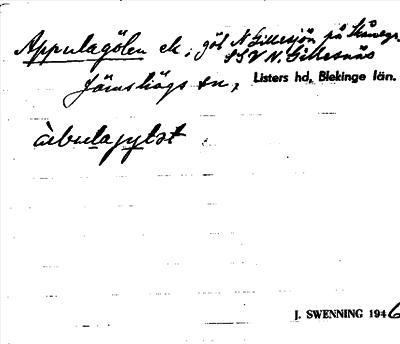 Appulagölen ek. göl N Gillesjön på
SSV N. Gillesnäs
Jämshögs sn, Listers hd, Blekinge län.
J. SWENNING 1946